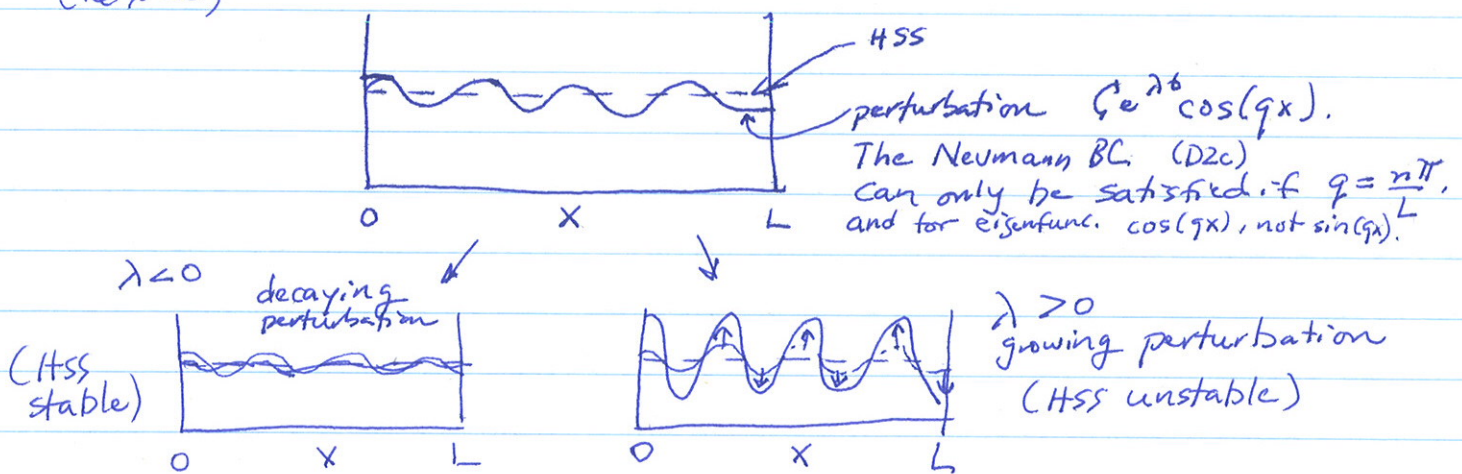 HSS
perturbation ζe^λt cos(qx).
The Neumann BC. (D2c)
can only be satisfied if q = nπ/L,
and for eigenfunc. cos(qx), not sin(qx).
0 X L
λ<0
decaying
perturbation
(HSS
stable)
0 X L
λ >0
growing perturbation
(HSS unstable)
0 X L